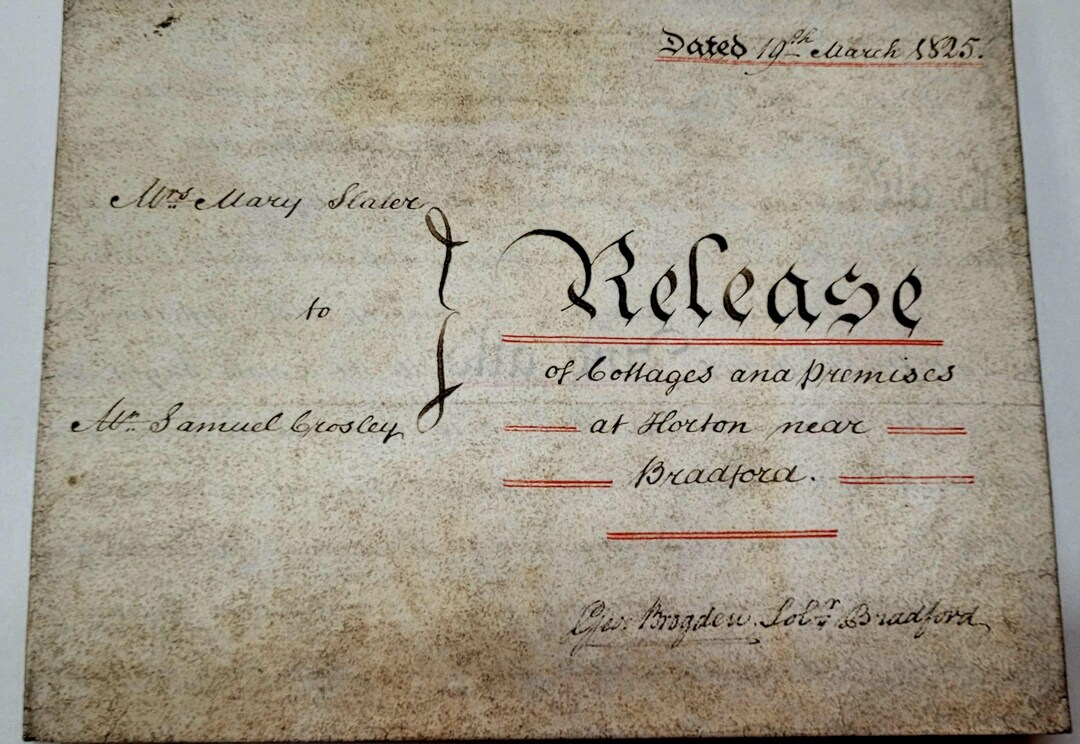 Dated 19th March 1825.
Mrs Mary Slater
to
Mr. Samuel Crosley
Release
of Cottages and Premises
at Horton near
Bradford.
Geo: Brogden. Solr. Bradford